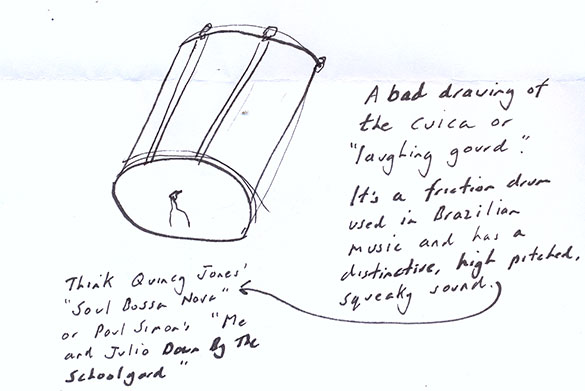 A bad drawing of
the cuica or
"laughing gourd".
It's a friction drum
used in Brazilian
music and has a
distinctive, high pitched,
squeaky sound.
Think Quincy Jones'
"Soul Bossa Nova"
or Paul Simon's "Me
and Julio Down By The
Schoolyard"